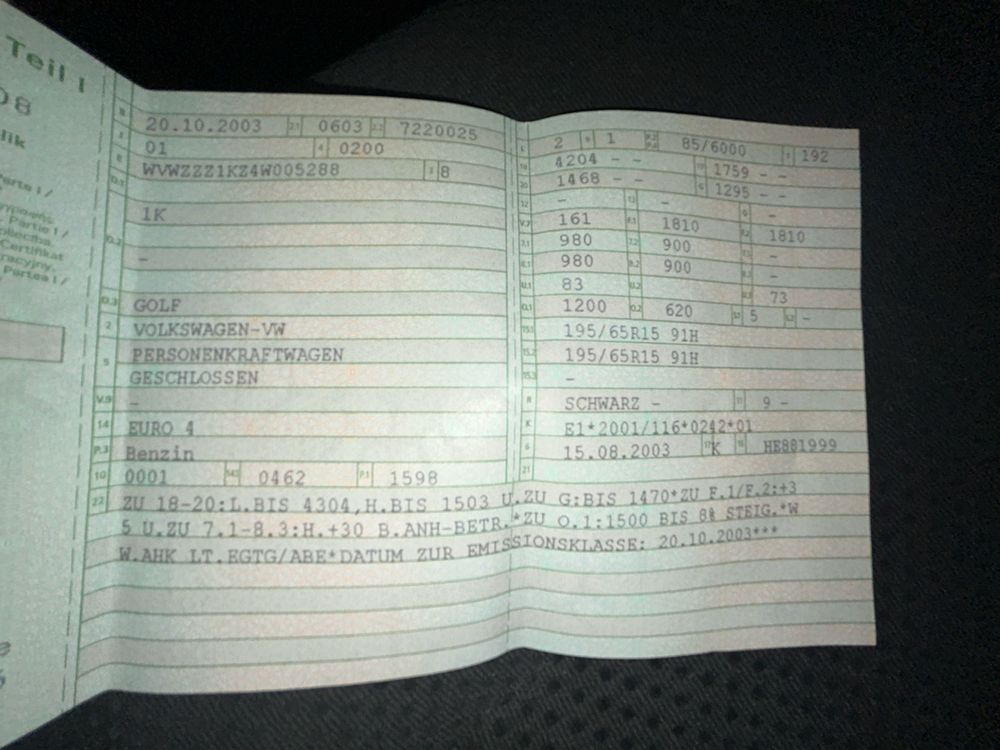 Teil I
08
lik
Parte I /
Partie I /
Certifikat
Partea I /
B 20.10.2003 2.1 0603 2.2 7220025
J 01 4 0200
E WVWZZZ1KZ4W005288 3 8
D.1
1K
D.2 -
D.3 GOLF
2 VOLKSWAGEN-VW
5 PERSONENKRAFTWAGEN
GESCHLOSSEN
V.9 -
14 EURO 4
P.3 Benzin
10 0001 14.1 0462 P.1 1598
L 2 9 1 P.2 P.4 85/6000 T 192
18 4204 - - 19 1759 - -
20 1468 - - G 1295 - -
12 - 13 - Q -
V.7 161 F.1 1810 F.2 1810
7.1 980 7.2 900 7.3 -
8.1 980 8.2 900 8.3 -
U.1 83 U.2 U.3 73
O.1 1200 O.2 620 S.1 5 S.2 -
15.1 195/65R15 91H
15.2 195/65R15 91H
15.3 -
R SCHWARZ - 11 9 -
K E1*2001/116*0242*01
6 15.08.2003 17 K 16 HE881999
21
22 ZU 18-20:L.BIS 4304,H.BIS 1503 U.ZU G:BIS 1470*ZU F.1/F.2:+3
5 U.ZU 7.1-8.3:H.+30 B.ANH-BETR.*ZU O.1:1500 BIS 8% STEIG.*W
W.AHK LT.EGTG/ABE*DATUM ZUR EMISSIONSKLASSE: 20.10.2003***